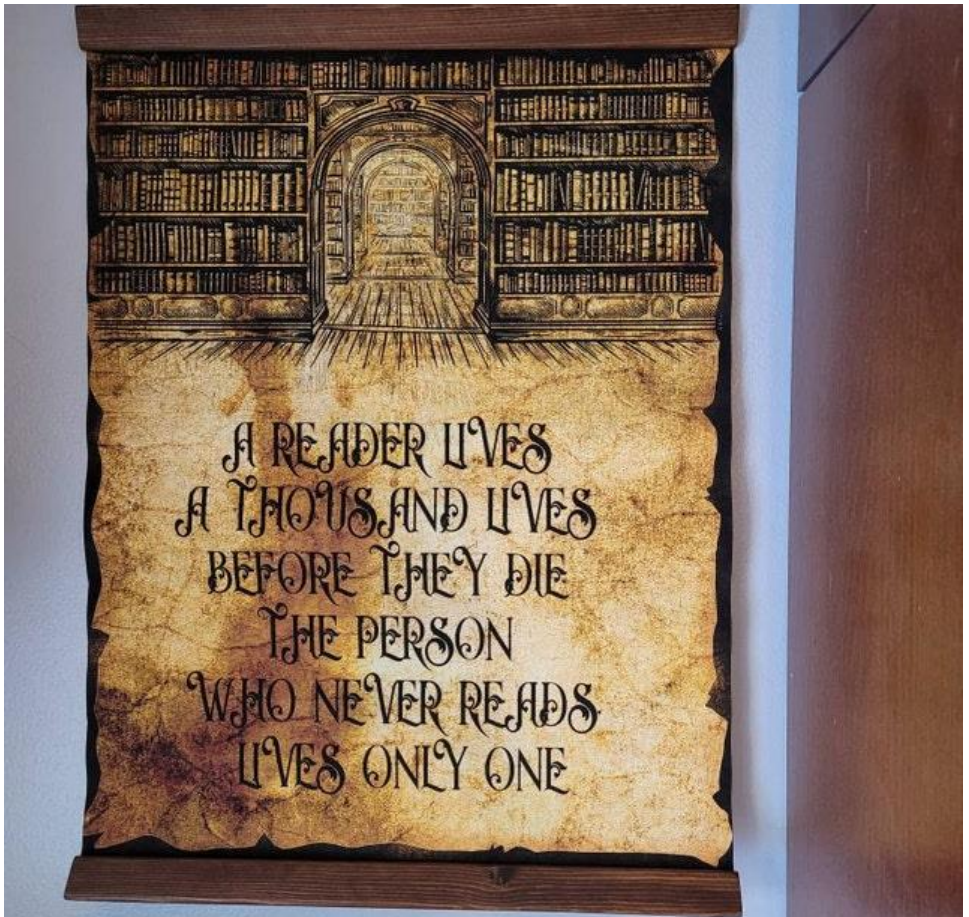 A READER LIVES
A THOUSAND LIVES
BEFORE THEY DIE
THE PERSON
WHO NEVER READS
LIVES ONLY ONE